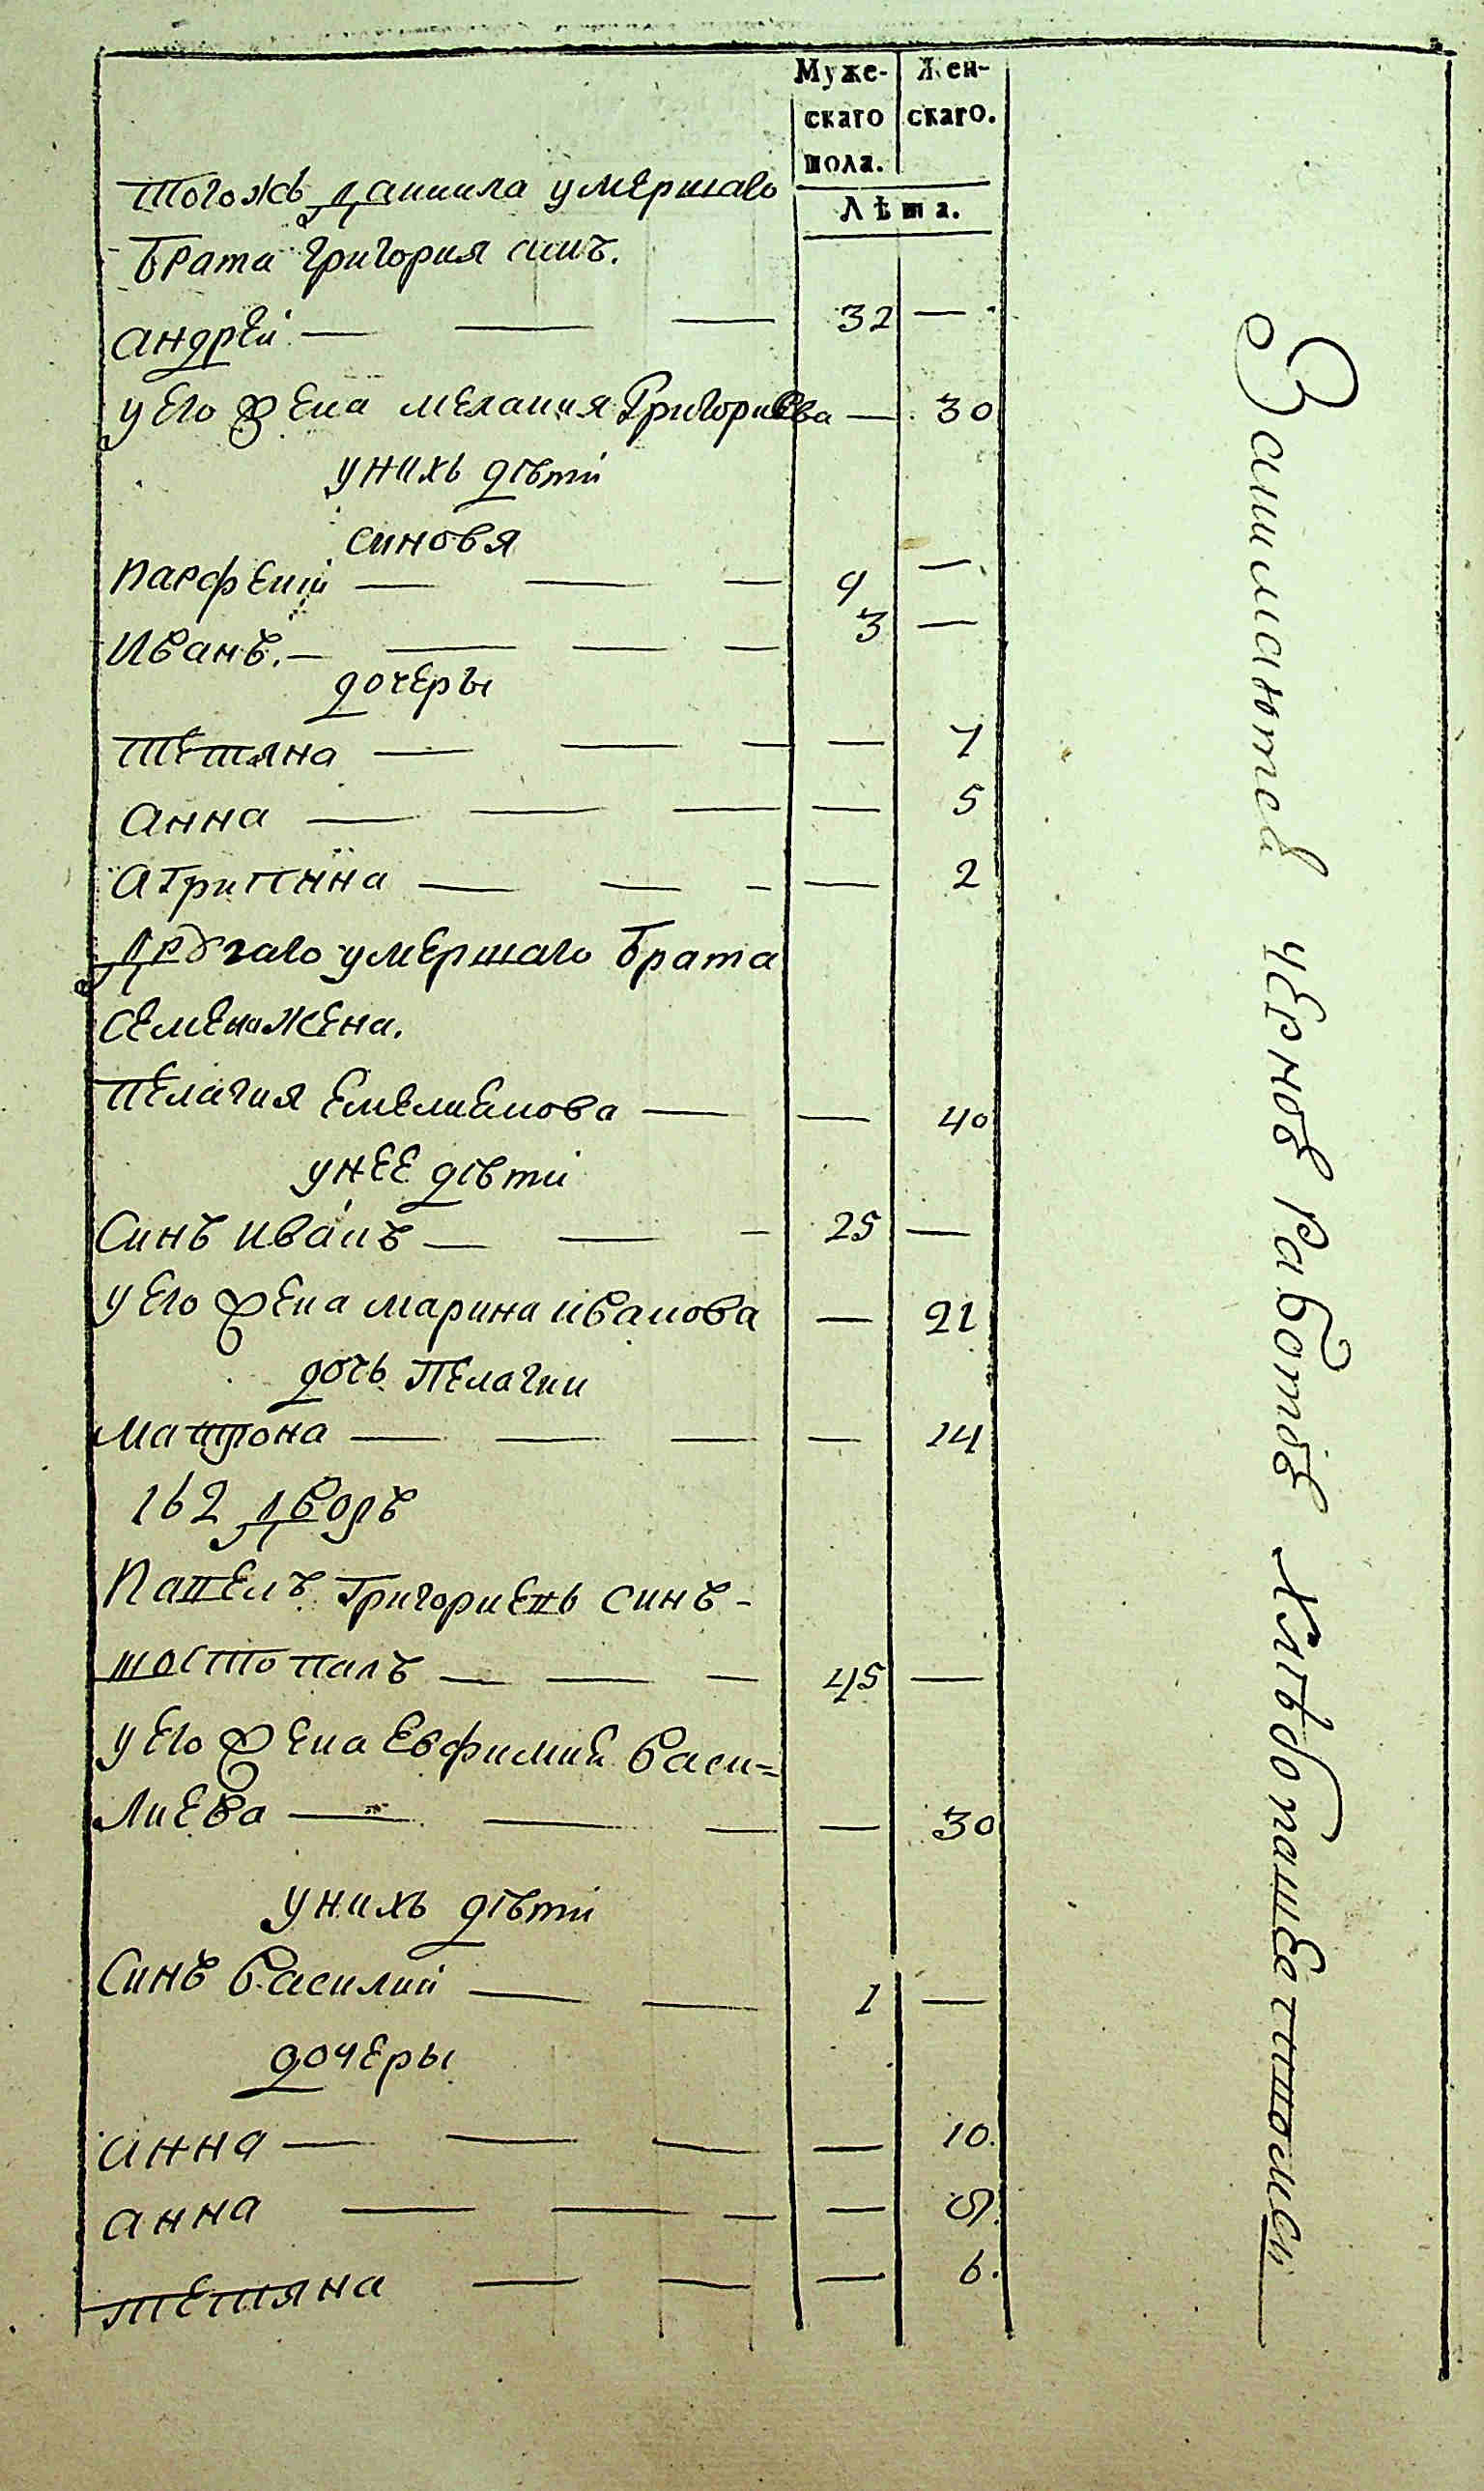 Муже- Жен-
скаго скаго.
пола.
Лѣта.
тогожъ Данила умершаго
брата григория синъ.
андрей — — — 32 —
у его жена мелания Григориева — 30
унихъ дѣти
синовя
парфений — — — 9 —
Иванъ. — — — — 3 —
дочеры
тетяна — — — — 7
анна — — — — 5
агрипина — — — — 2
Другаго умершаго брата
семена жена.
пелагия Емелианова — — 40
унее дѣти
Синъ иванъ — — — 25 —
у его жена марина иванова — 21
дочь Пелагии
матрона — — — — 14
162 Дворъ
Павелъ Григориевъ синъ -
шостопалъ — — — 45 —
у его жена Евфимия васи=
лиева — — — — 30
унихъ дѣти
Синъ Василий — — 1 —
дочеры
анна — — — — 10.
анна — — — — 9.
тетяна — — — 6.
Занимаются черною работою хлѣбопашественною